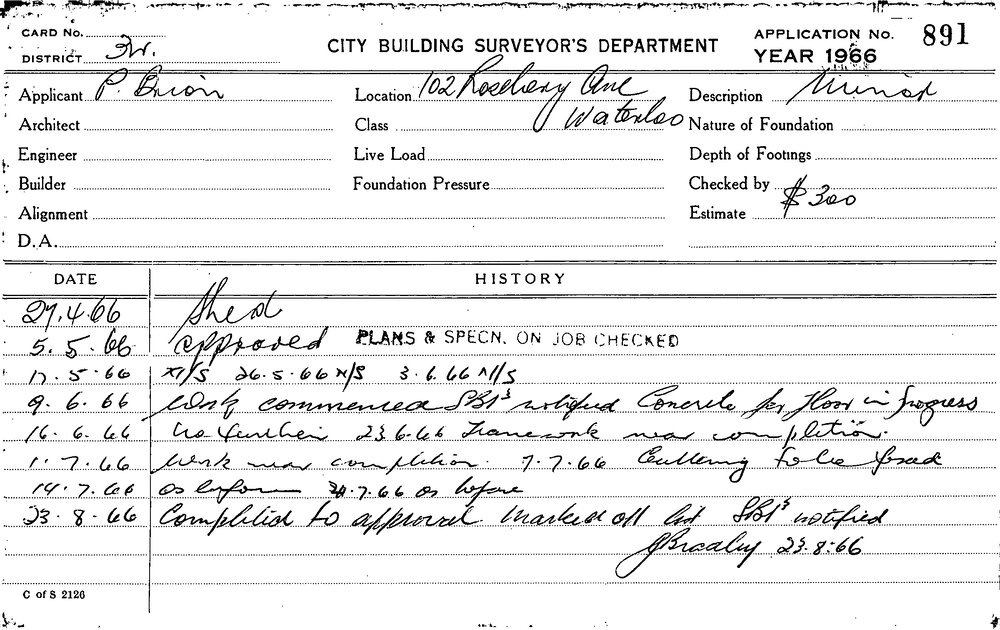 CARD No.
DISTRICT
CITY BUILDING SURVEYOR'S DEPARTMENT
APPLICATION No. 891
YEAR 1966
Applicant P. Brion
Location 102 Rosebery Ave
Waterloo
Description Minor
Architect
Class
Nature of Foundation
Engineer
Live Load
Depth of Footings
Builder
Foundation Pressure
Checked by
Alignment
Estimate $300
D.A.
DATE HISTORY
27.4.66 Shed
5.5.66 approved PLANS & SPECN. ON JOB CHECKED
17.5.66 N/S 26.5.66 N/S 3.6.66 N/S
9.6.66 Work commenced notified Concrete for floor in progress
16.6.66 No further 23.6.66 Framework near completion.
1.7.66 Work near completion. 7.7.66 Guttering to be fixed
14.7.66 as before .7.66 as before
23.8.66 Completed to approval. Marked off list notified
23.8.66
C of S 2126